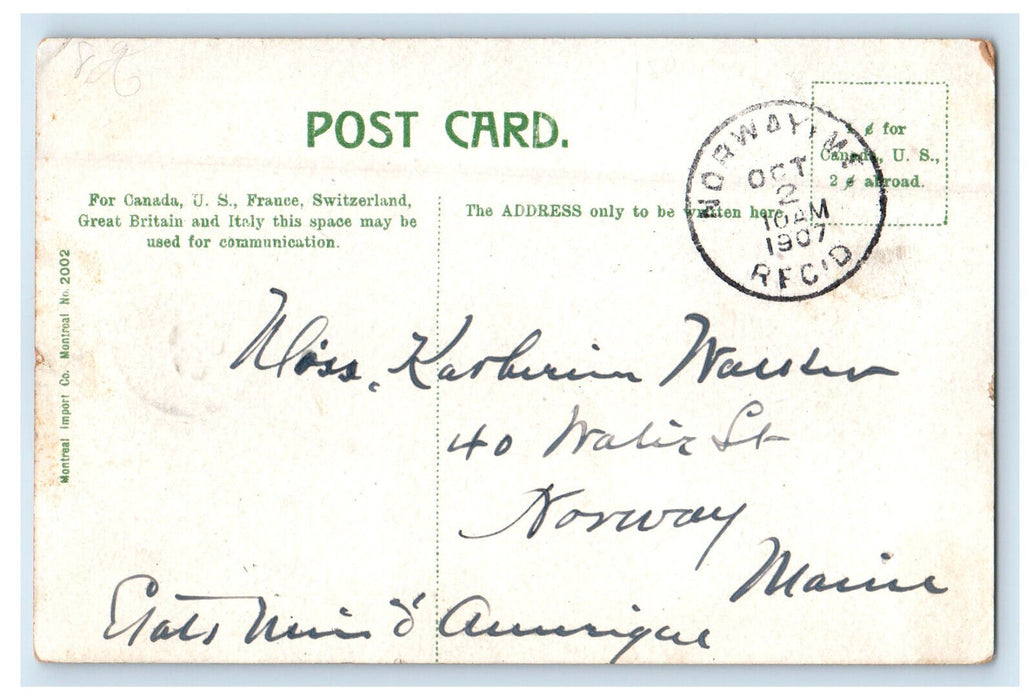 POST CARD.
For Canada, U. S., France, Switzerland,
Great Britain and Italy this space may be
used for communication.
The ADDRESS only to be written here.
¢ for
Canada, U. S.,
2 ¢ abroad.
NORWAY, ME
OCT
2
10 AM
1907
REC'D
Montreal Import Co. Montreal No. 2002
Miss. Katherine
40 Water St
Norway
Maine
Etats Unis d' Amerique